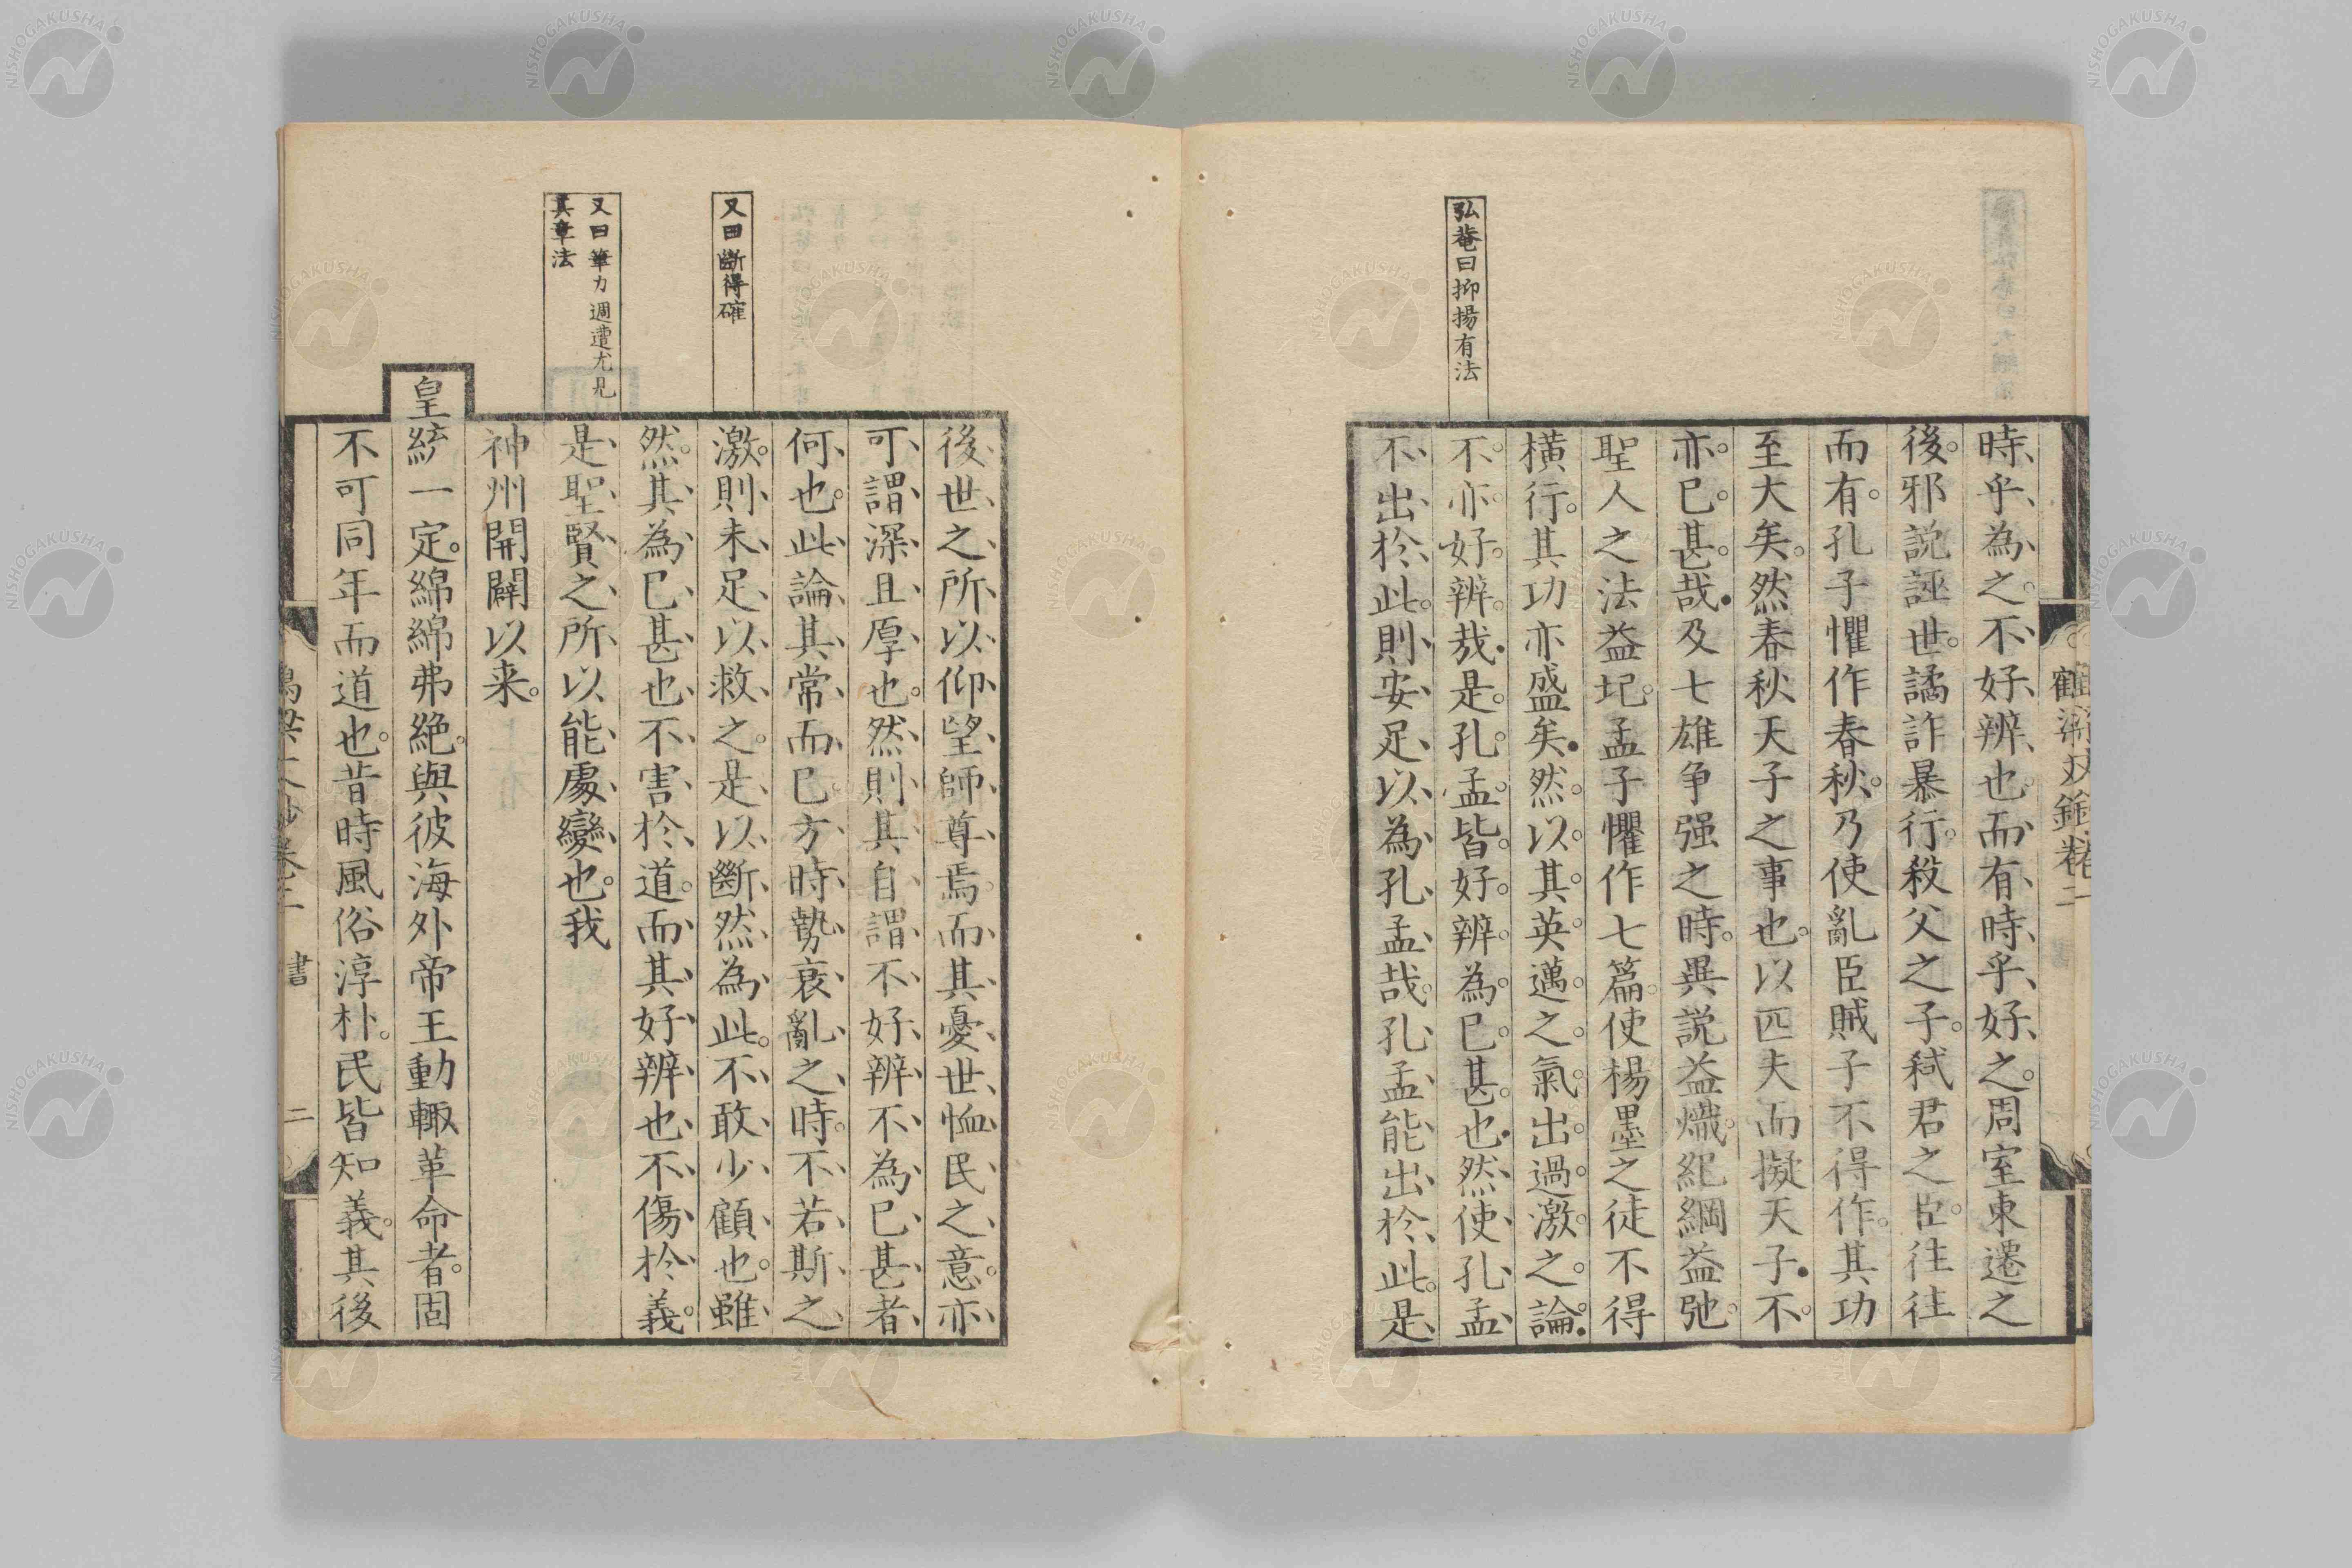 弘菴曰抑揚有法
時乎為之不好辨也而有時乎好之周室東遷之
後邪説誣世譎詐暴行殺父之子弑君之臣往往
而有孔子懼作春秋乃使亂臣賊子不得作其功
至大矣然春秋天子之事也以匹夫而擬天子不
亦已甚哉及七雄争强之時異説益熾紀綱益弛
聖人之法益圮孟子懼作七篇使楊墨之徒不得
橫行其功亦盛矣然以其英邁之氣出過激之論
不亦好辨哉是孔孟皆好辨為已甚也然使孔孟
不出於此則安足以為孔孟哉孔孟能出於此是
又曰斷得確
又曰筆力週遭尤見
其章法
後世之所以仰望師尊焉而其憂世恤民之意亦
可謂深且厚也然則其自謂不好辨不為已甚者
何也此論其常而已方時勢衰亂之時不若斯之
激則未足以救之是以斷然為此不敢少顧也雖
然其為已甚也不害於道而其好辨也不傷於義
是聖賢之所以能處變也我
神州開闢以来
皇統一定綿綿弗絶與彼海外帝王動輙革命者固
不可同年而道也昔時風俗淳朴民皆知義其後
書
二
NISHOGAKUSHA